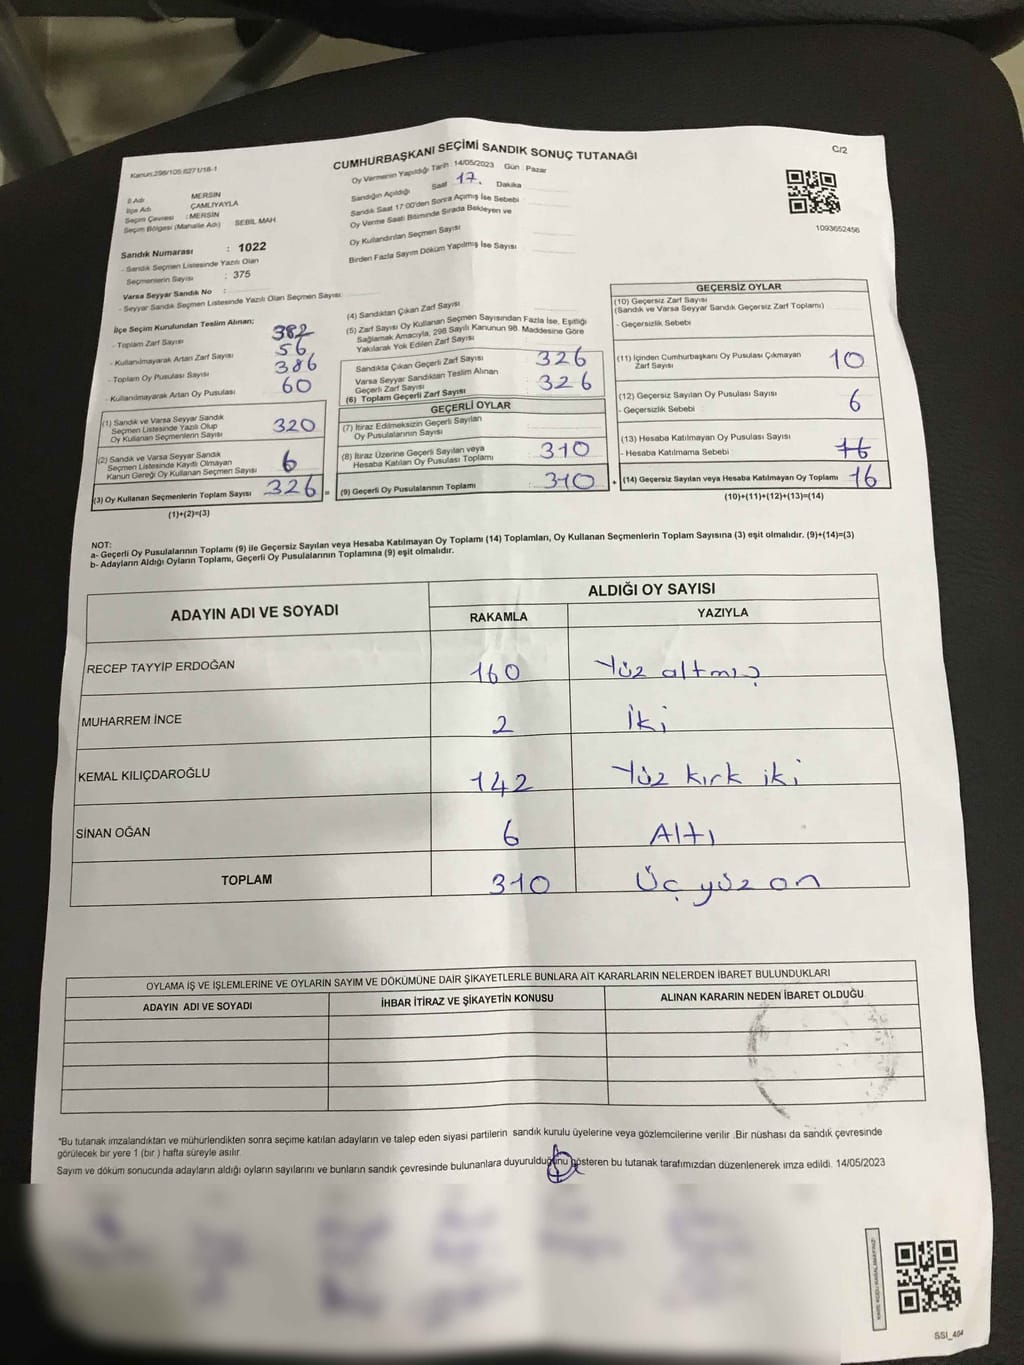 CUMHURBAŞKANI SEÇİMİ SANDIK SONUÇ TUTANAĞI
C/2
Kanun:298/105,6271/18-1
Oy Vermenin Yapıldığı Tarih : 14/05/2023 Gün : Pazar
Sandığın Açıldığı Saat 17. Dakika
Sandık Saat 17:00'den Sonra Açımış İse Sebebi
Oy Verme Saati Bitiminde Sırada Bekleyen ve
Oy Kullandırılan Seçmen Sayısı
Birden Fazla Sayım Döküm Yapılmış İse Sayısı
1093652456
İl Adı MERSİN
İlçe Adı ÇAMLIYAYLA
Seçim Çevresi : MERSİN
Seçim Bölgesi (Mahalle Adı) SEBİL MAH.
Sandık Numarası : 1022
- Sandık Seçmen Listesinde Yazılı Olan
Seçmenlerin Sayısı : 375
Varsa Seyyar Sandık No :
- Seyyar Sandık Seçmen Listesinde Yazılı Olan Seçmen Sayısı:
İlçe Seçim Kurulundan Teslim Alınan;
- Toplam Zarf Sayısı 382
- Kullanılmayarak Artan Zarf Sayısı 56
- Toplam Oy Pusulası Sayısı 386
- Kullanılmayarak Artan Oy Pusulası 60
(1) Sandık ve Varsa Seyyar Sandık
Seçmen Listesinde Yazılı Olup
Oy Kullanan Seçmenlerin Sayısı 320
(2) Sandık ve Varsa Seyyar Sandık
Seçmen Listesinde Kayıtlı Olmayan
Kanun Gereği Oy Kullanan Seçmen Sayısı 6
(3) Oy Kullanan Seçmenlerin Toplam Sayısı 326 =
(1)+(2)=(3)
(4) Sandıktan Çıkan Zarf Sayısı
(5) Zarf Sayısı Oy Kullanan Seçmen Sayısından Fazla İse, Eşitliği
Sağlamak Amacıyla, 298 Sayılı Kanunun 98. Maddesine Göre
Yakılarak Yok Edilen Zarf Sayısı
Sandıkta Çıkan Geçerli Zarf Sayısı 326
Varsa Seyyar Sandıktan Teslim Alınan
Geçerli Zarf Sayısı
(6) Toplam Geçerli Zarf Sayısı 326
GEÇERLİ OYLAR
(7) İtiraz Edilmeksizin Geçerli Sayılan
Oy Pusulalarının Sayısı
(8) İtiraz Üzerine Geçerli Sayılan veya
Hesaba Katılan Oy Pusulası Toplamı 310
(9) Geçerli Oy Pusulalarının Toplamı 310 +
GEÇERSİZ OYLAR
(10) Geçersiz Zarf Sayısı
(Sandık ve Varsa Seyyar Sandık Geçersiz Zarf Toplamı)
- Geçersizlik Sebebi
(11) İçinden Cumhurbaşkanı Oy Pusulası Çıkmayan
Zarf Sayısı 10
(12) Geçersiz Sayılan Oy Pusulası Sayısı
- Geçersizlik Sebebi 6
(13) Hesaba Katılmayan Oy Pusulası Sayısı
- Hesaba Katılmama Sebebi 16
(14) Geçersiz Sayılan veya Hesaba Katılmayan Oy Toplamı 16
(10)+(11)+(12)+(13)=(14)
NOT:
a- Geçerli Oy Pusulalarının Toplamı (9) ile Geçersiz Sayılan veya Hesaba Katılmayan Oy Toplamı (14) Toplamları, Oy Kullanan Seçmenlerin Toplam Sayısına (3) eşit olmalıdır. (9)+(14)=(3)
b- Adayların Aldığı Oyların Toplamı, Geçerli Oy Pusulalarının Toplamına (9) eşit olmalıdır.
ADAYIN ADI VE SOYADI ALDIĞI OY SAYISI
RAKAMLA YAZIYLA
RECEP TAYYİP ERDOĞAN 160 Yüz altmış
MUHARREM İNCE 2 İki
KEMAL KILIÇDAROĞLU 142 Yüz kırk iki
SİNAN OĞAN 6 Altı
TOPLAM 310 Üç yüz on
OYLAMA İŞ VE İŞLEMLERİNE VE OYLARIN SAYIM VE DÖKÜMÜNE DAİR ŞİKAYETLERLE BUNLARA AİT KARARLARIN NELERDEN İBARET BULUNDUKLARI
ADAYIN ADI VE SOYADI İHBAR İTİRAZ VE ŞİKAYETİN KONUSU ALINAN KARARIN NEDEN İBARET OLDUĞU
*Bu tutanak imzalandıktan ve mühürlendikten sonra seçime katılan adayların ve talep eden siyasi partilerin sandık kurulu üyelerine veya gözlemcilerine verilir .Bir nüshası da sandık çevresinde
görülecek bir yere 1 (bir ) hafta süreyle asılır.
Sayım ve döküm sonucunda adayların aldığı oyların sayılarını ve bunların sandık çevresinde bulunanlara duyurulduğunu gösteren bu tutanak tarafımızdan düzenlenerek imza edildi. 14/05/2023
SSI_404